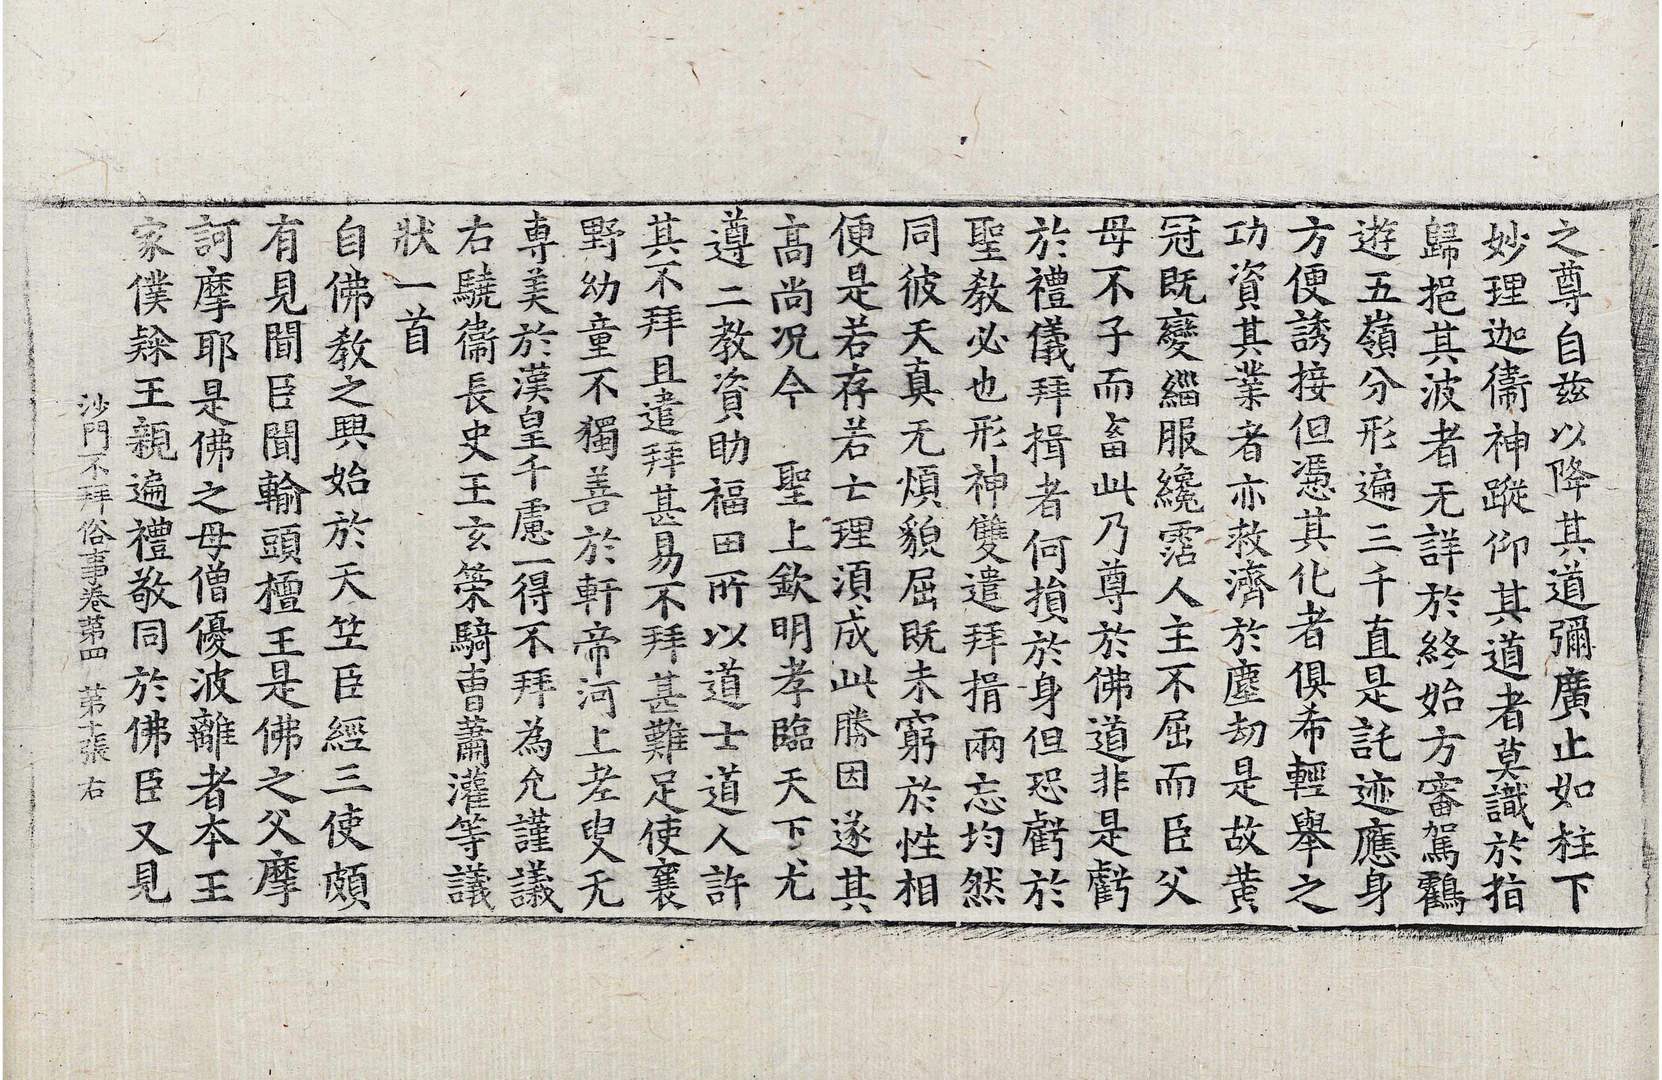 之尊自茲以降其道彌廣止如柱下
妙理迦衛神蹤仰其道者莫識於指
歸挹其波者无詳於終始方審駕鸖
遊五嶺分形遍三千直是託迹應身
方便誘接但憑其化者俱希輕舉之
功資其業者亦救濟於塵劫是故黃
冠既變緇服纔霑人主不屈而臣父
母不子而畜此乃尊於佛道非是虧
於禮儀拜揖者何損於身但恐虧於
聖教必也形神雙遣拜揖兩忘均然
同彼天真无煩貌屈既未窮於性相
便是若存若亡理湏成此勝因遂其
高尚况今　聖上欽明孝臨天下尤
遵二教資助福田所以道士道人許
其不拜且遣拜甚易不拜甚難足使襄
野幼童不獨善於軒帝河上老叟无
專美於漢皇千慮一得不拜為允謹議
右驍衞長史王玄策騎曹蕭灌等議
狀一首
自佛教之興始於天竺臣經三使頗
有見聞臣聞輸頭檀王是佛之父摩
訶摩耶是佛之母僧優波離者本王
家僕𨽻王親遍禮敬同於佛臣又見
沙門不拜俗事卷第四　第十張　右